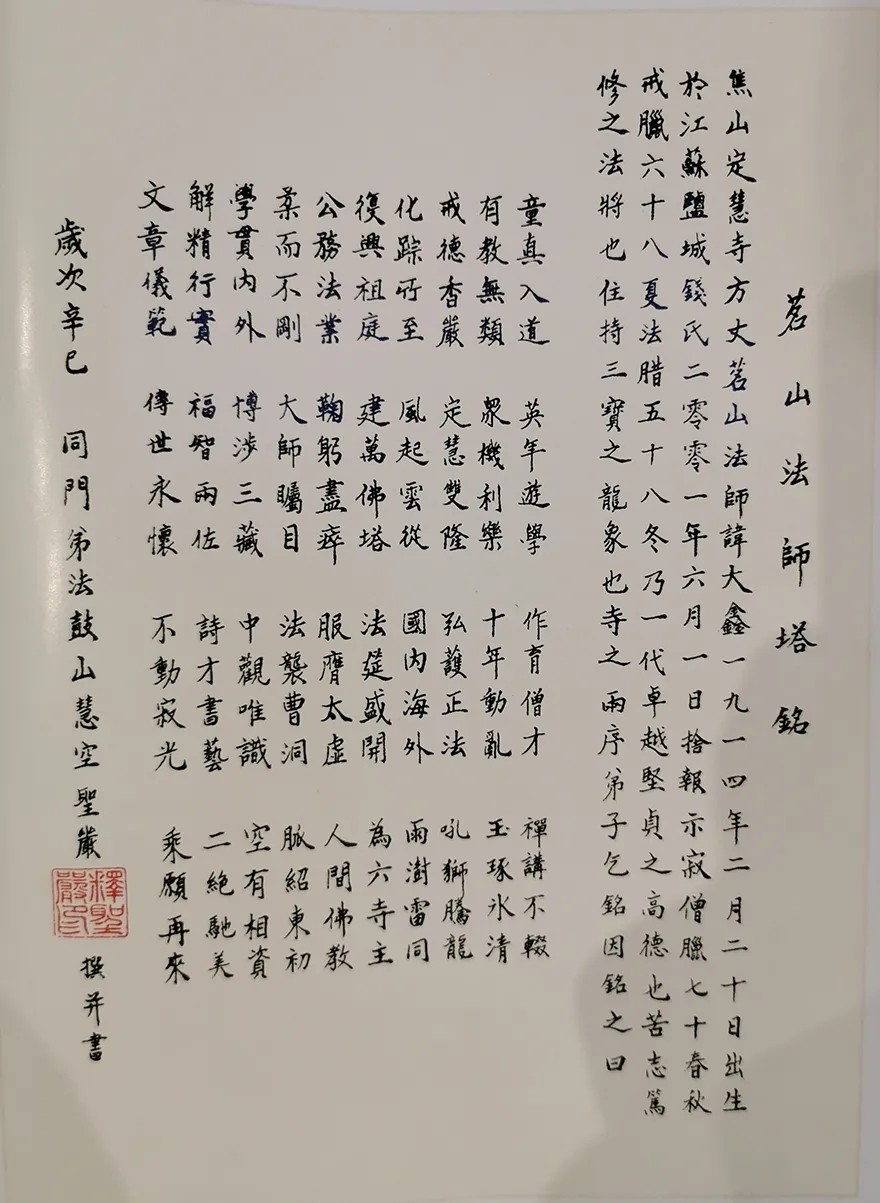 茗山法師塔銘
焦山定慧寺方丈茗山法師諱大鑫一九一四年二月二十日出生
於江蘇鹽城錢氏二零零一年六月一日捨報示寂僧臘七十春秋
戒臘六十八夏法腊五十八冬乃一代卓越堅貞之高德也苦志篤
修之法將也住持三寶之龍象也寺之兩序弟子乞銘因銘之曰
童真入道 英年遊學 作育僧才 禪講不輟
有教無類 眾機利樂 十年動亂 玉琢氷清
戒德香嚴 定慧雙隆 弘護正法 吼獅騰龍
化踪所至 風起雲從 國內海外 雨澍雷同
復興祖庭 建萬佛塔 法筵盛開 為六寺主
公務法業 鞠躬盡瘁 服膺太虛 人間佛教
柔而不剛 大師矚目 法襲曹洞 脈紹東初
學貫內外 博涉三藏 中觀唯識 空有相資
解精行實 福智兩佐 詩才書藝 二絕馳美
文章儀範 傳世永懷 不動寂光 乘願再來
歲次辛巳 同門弟法鼓山慧空聖嚴 撰并書
釋聖嚴印